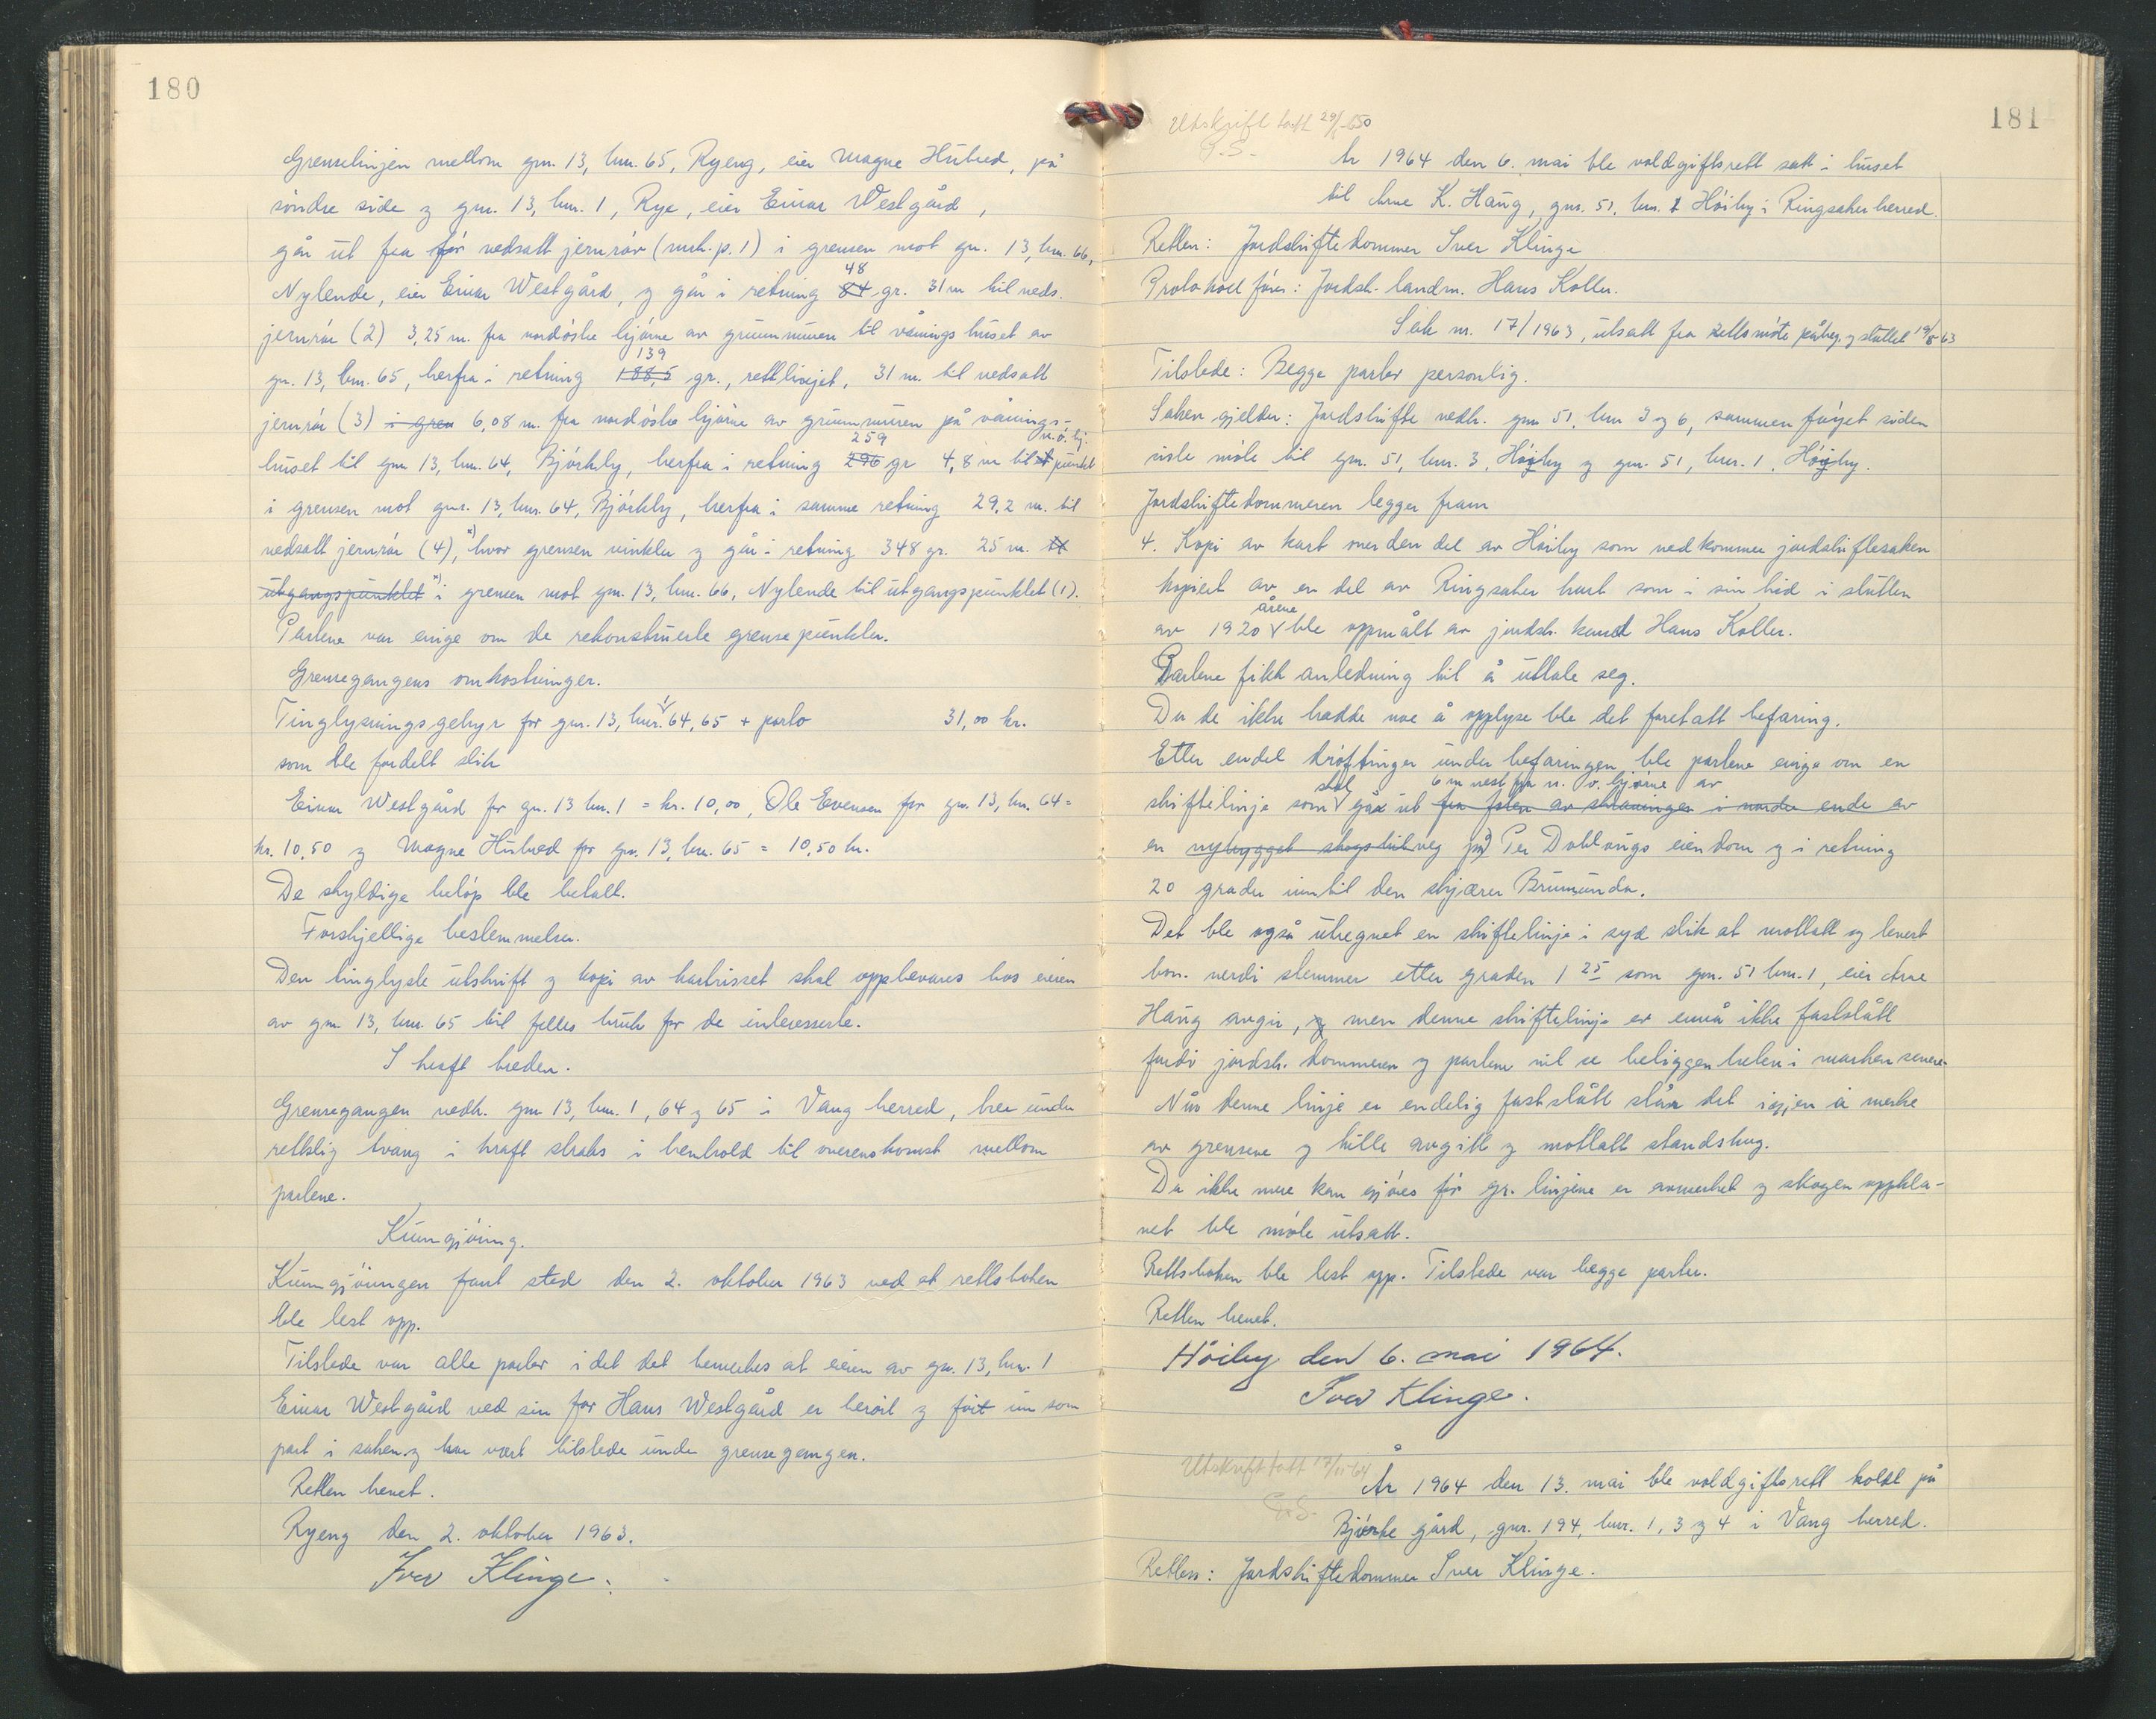 180
Grenselinjen mellom gnr. 13, bnr. 65, Ryeng, eier Magne Hubred, på
söndre side og gnr. 13, bnr. 1, Rye, eier Einar Westgård,
går ut fra för nedsatt jernrör (mrk. p. 1) i grensen mot gnr. 13, bnr. 66,
Nylende, eier Einar Westgård, og går i retning 84 48 gr. 31 m til neds.
jernrör (2) 3,25 m. fra nordöstre hjörne av grunnmuren til våningshuset av
gnr. 13, bnr. 65, herfra i retning 188,5 139 gr., rettlinjet, 31 m. til nedsatt
jernrör (3) i gren 6,08 m. fra nordöstre hjörne av grunnmuren på vånings-
huset til gnr 13, bnr. 64, Björkly, herfra i retning 296 259 gr 4,8 m til et punkt n.ö.hj.
i grensen mot gnr. 13, bnr. 64, Björkly, herfra i samme retning 29,2 m. til
nedsatt jernrör (4), x) hvor grensen vinkler og går i retning 348 gr. 25 m. til
utgangspunktet x) i grensen mot gnr. 13, bnr. 66, Nylende til utgangspunktet (1).
Partene var enige om de rekonstruerte grensepunkter.
Grensegangens omkostninger.
Tinglysningsgebyr for gnr. 13, bnr. 1, 64, 65 + porto 31,00 kr.
som ble fordelt slik
Einar Westgård for gnr. 13 bnr. 1 = kr. 10,00, Ole Evensen for gnr. 13, bnr. 64 =
kr. 10,50 og Magne Hubred for gnr. 13, bnr. 65 = 10,50 kr.
De skyldige belöp ble betalt.
Forskjellige bestemmelser.
Den tinglyste utskrift og kopi av kartrisset skal oppbevares hos eieren
av gnr. 13, bnr. 65 til felles bruk for de interesserte.
I kraft treden.
Grensegangen vedk. gnr 13, bnr. 1, 64 og 65 i Vang herred, trer under
rettslig tvang i kraft straks i henhold til overenskomst mellom
partene.
Kunngjöring.
Kunngjöringen fant sted den 2. oktober 1963 ved at rettsboken
ble lest opp.
Tilstede var alle parter idet det bemerkes at eieren av gnr. 13, bnr. 1
Einar Westgård ved sin far Hans Westgård er  og fört inn som
part i saken og har vært tilstede under grensegangen.
Retten hevet.
Ryeng den 2. oktober 1963.
Iver Klinge.
181
Utskrift tatt 29/5-650
G.S.
År 1964 den 6. mai ble voldgiftsrett satt i huset
til Arne K. Haug, gnr. 51, bnr. 1 Höiby i Ringsaker herred.
Retten: Jordskiftedommer Iver Klinge
Protokollförer: Jordsk. landm. Hans Koller.
Sak nr. 17/1963, utsatt fra rettsmöte påbeg. og sluttet 19/8-63
Tilstede: Begge parter personlig.
Saken gjelder: Jordskifte vedk. gnr 51, bnr 3 og 6, sammenföyet siden
siste möte til gnr. 51, bnr. 3, Höyby og gnr. 51, bnr. 1, Höyby.
Jordskiftedommeren legger fram
4. Kopi av kart over den del av Höiby som vedkommer jordskiftesaken
kopiert av en del av Ringsaker kart som i sin tid i slutten
av 1920 årene ble oppmålt av jordsk. kand Hans Koller.
Partene fikk anledning til å uttale seg.
Da de ikke hadde noe å opplyse ble det foretatt befaring.
Etter endel dröftinger under befaringen ble partene enige om en
skiftelinje som skal gå ut fra foten av skråningen i nordre ende av 6 m vest for n. v. hjörne av
en nybygget skogsbilveg på Per Doblougs eiendom og i retning
20 grader inntil den skjærer Brumunda.
Det ble også utregnet en skiftelinje i syd slik at mottatt og levert
bon. verdi stemmer etter graden 1 25 som gnr. 51 bnr. 1, eier Arne
Haug avgir, og men denne skiftelinje er ennå ikke fastslått
fordi jordsk. dommeren og partene vil se beliggenheten i marken senere.
Når denne linje er endelig fastslått står det igjen å merke
av grensene og telle avgitt og mottatt standskog.
Da ikke mere kan gjöres för gr. linjene er avmerket og skogen oppkla-
vet ble möte utsatt.
Rettsboken ble lest opp. Tilstede var begge parter.
Retten hevet.
Höiby den 6. mai 1964.
Iver Klinge.
Utskrift tatt 17/11-64
G.S.
År 1964 den 13. mai ble voldgiftsrett holdt på
Björke gård, gnr. 194, bnr. 1, 3 og 4 i Vang herred.
Retten: Jordskiftedommer Iver Klinge.